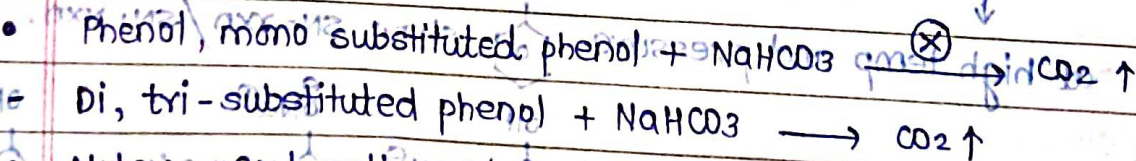 • Phenol, mono substituted phenol + NaHCO3 ⊗→ CO2 ↑
- Di, tri-substituted phenol + NaHCO3 → CO2 ↑